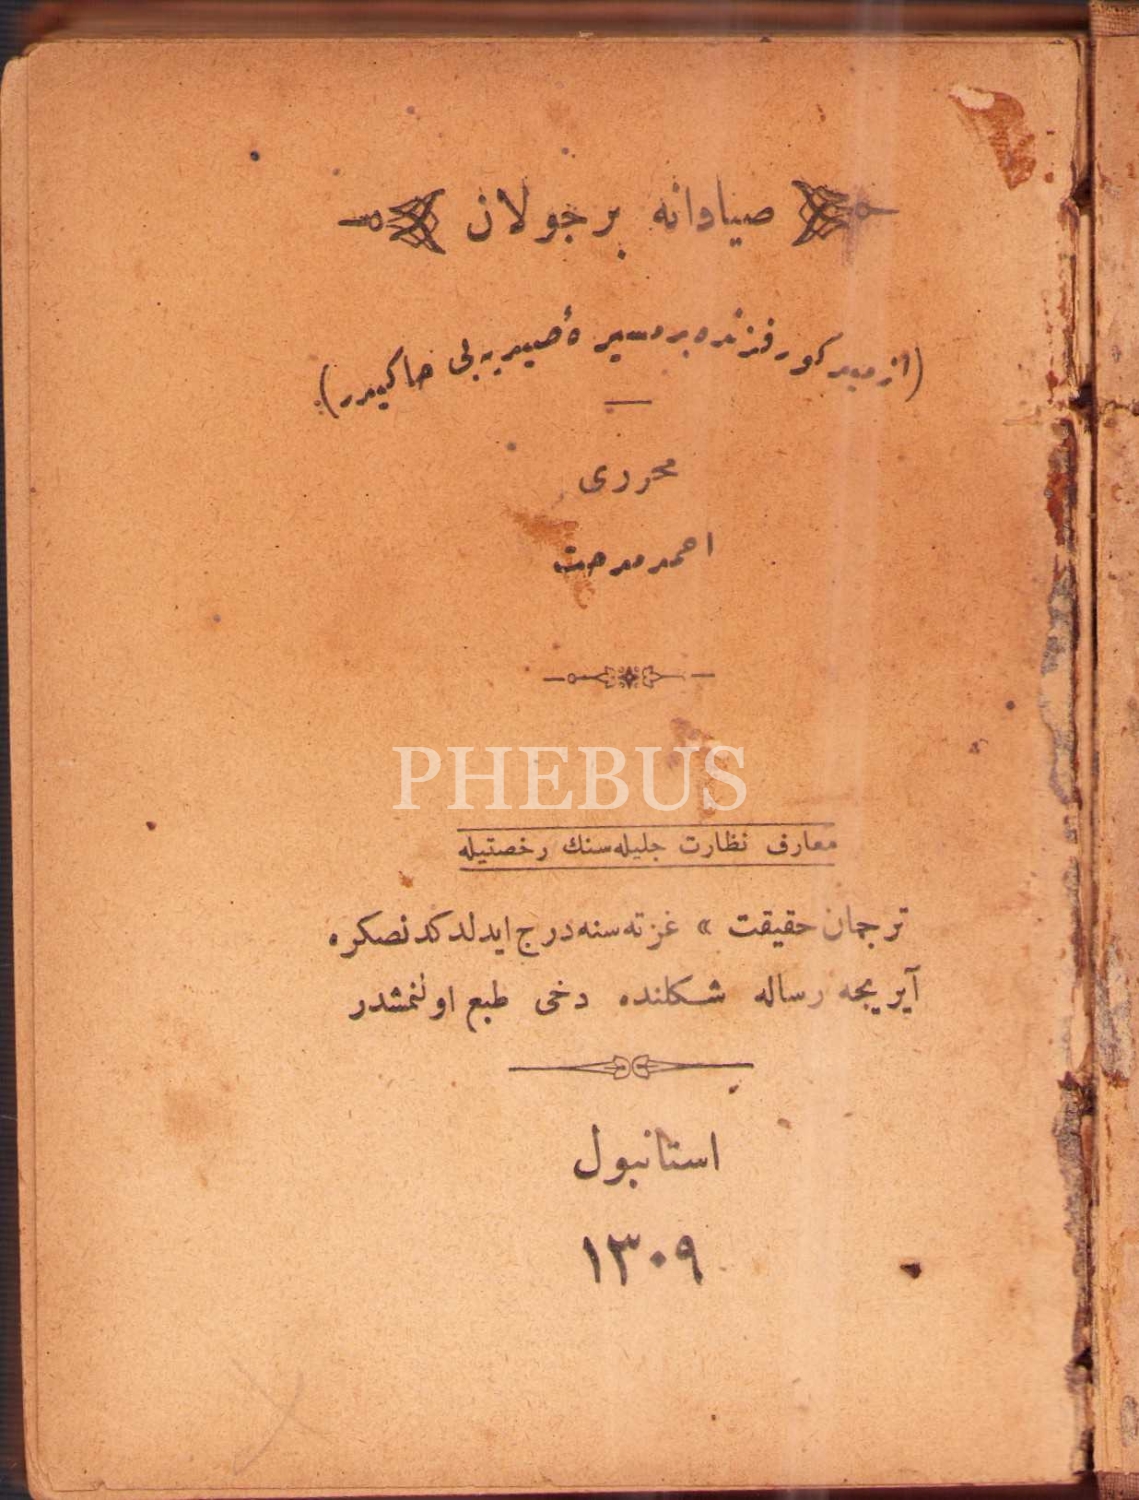 صیادانه بر جولان
(ازمید کورفزنده بر مسیرهٔ صیدیه‌یی حاکیدر)
محرری
احمد مدحت
PHEBUS
معارف نظارت جلیله‌سنك رخصتیله
ترجمان حقیقت » غزته‌سنه درج ایدلدکدنصکره
آیریجه رساله شکلنده دخی طبع اولنمشدر
استانبول
١٣٠٩